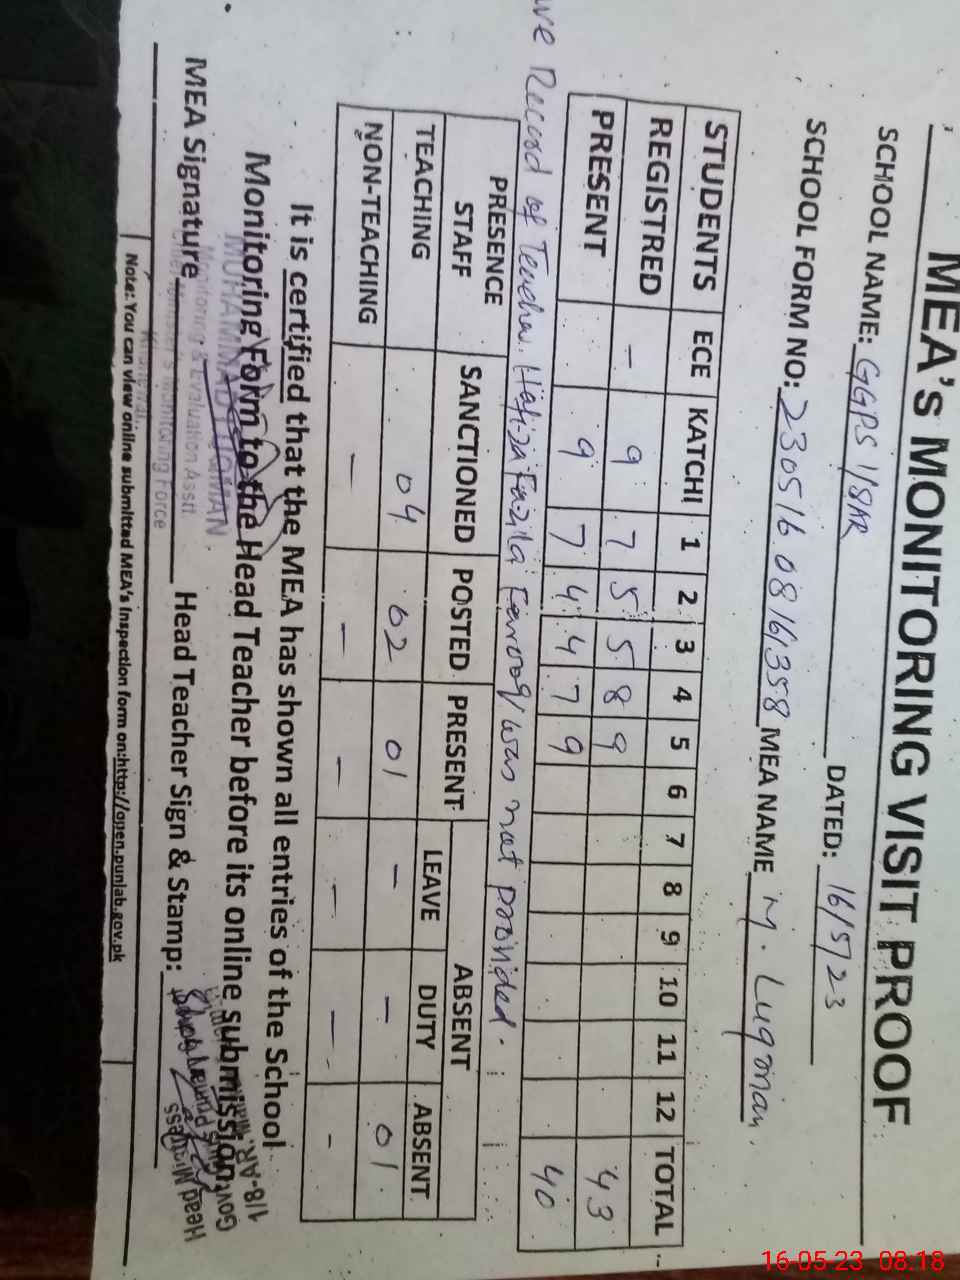 MEA's MONITORING VISIT PROOF
SCHOOL NAME: GGPS 1/8AR DATED: 16/5/23
SCHOOL FORM NO: 230516.0816/358 MEA NAME M. Luqman.
STUDENTS ECE KATCHI 1 2 3 4 5 6 7 8 9 10 11 12 TOTAL
REGISTRED - 9 7 5 5 8 9 43
PRESENT 9 7 4 4 7 9 40
Record of Teacher Hafiza Fazila Farooq was not provided.
PRESENCE STAFF SANCTIONED POSTED PRESENT ABSENT
LEAVE DUTY ABSENT
TEACHING 04 02 01 - - 01
NON-TEACHING - - - - - -
It is certified that the MEA has shown all entries of the School
Monitoring Form to the Head Teacher before its online submission.
MUHAMMAD LUQMAN
Monitoring & Evaluation Asstt.
Chief Minister's Monitoring Force
MEA Signature Head Teacher Sign & Stamp:
Head Mistress
Govt. Girls Primary School
1/8-AR,
Note:. You can view online submitted MEA's Inspection form on:http://open.punjab.gov.pk
16-05-23 08:18